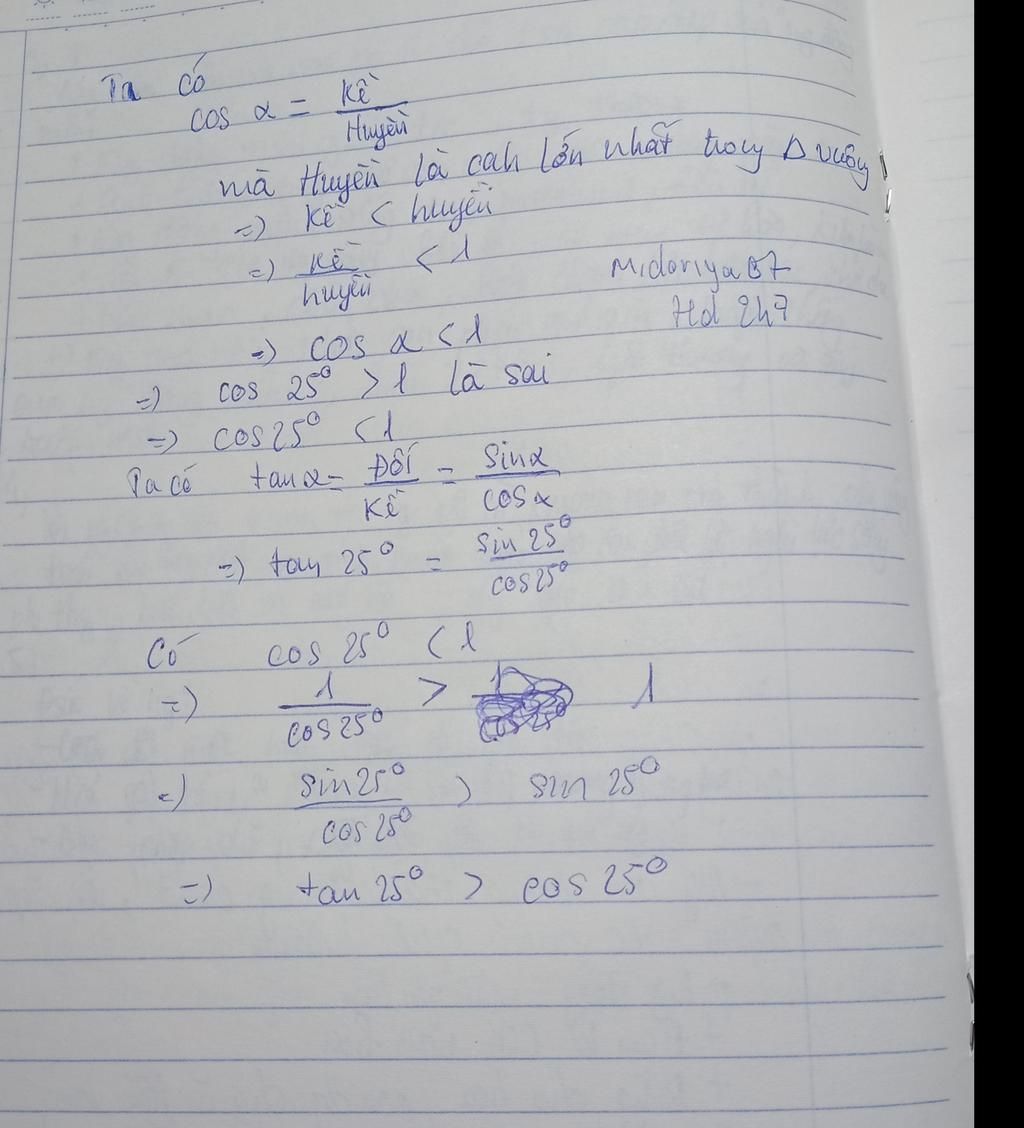 Ta có
cos α = Kề / Huyền
mà Huyền là cah lớn nhất trong Δ vuông
=) Kề < huyền
=) Kề / huyền < 1
Midoriya 87
Hd 247
=) cos α < 1
=) cos 25° > 1 là sai
=) cos 25° < 1
Ta có tan α = Đối / Kề = sin α / cos α
=) tan 25° = sin 25° / cos 25°
Có cos 25° < 1
=) 1 / cos 25° > 1
=) sin 25° / cos 25° > sin 25°
=) tan 25° > cos 25°